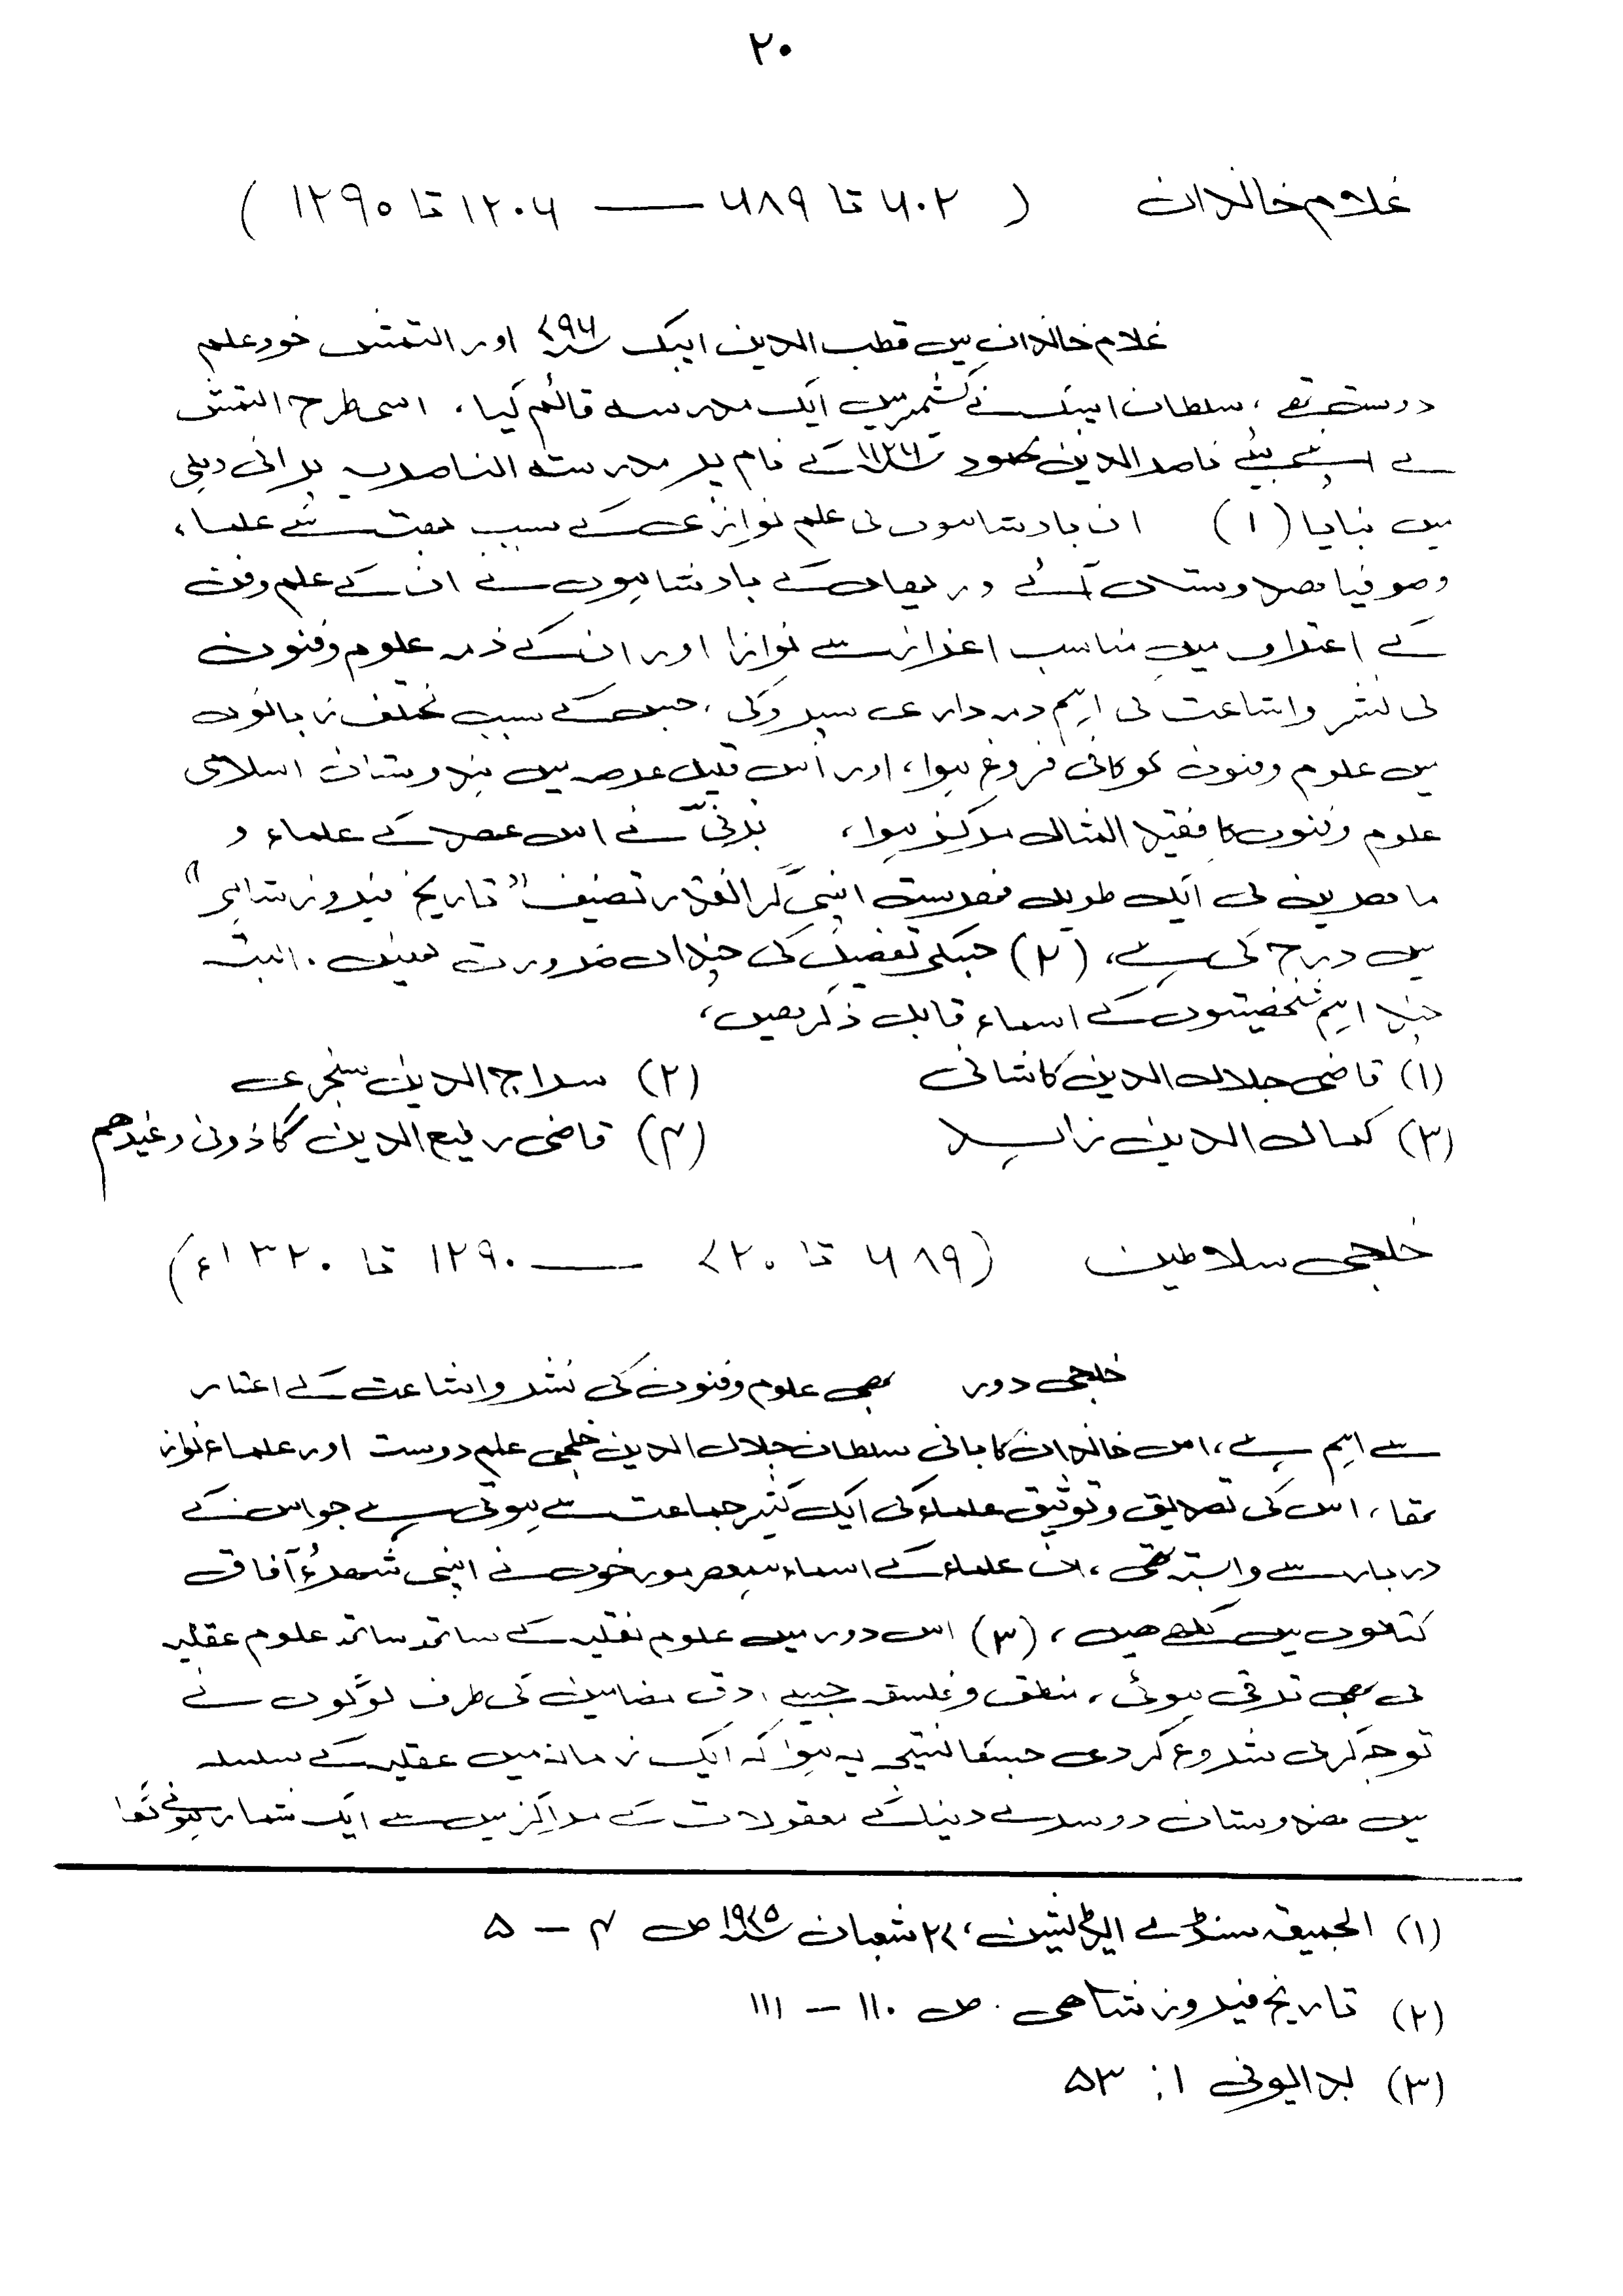 ۲۰
غلام خاندان ( ۶۰۲ تا ۶۸۹ — ۱۲۰۶ تا ۱۲۹۰ )
غلام خاندان میں قطب الدین ایبک ۷۹۶ اور التمش خود علم
دوست تھے، سلطان ایبک نے کشمیر میں ایک مدرسہ قائم کیا، اسی طرح التمش
نے اپنے بیٹے ناصر الدین محمود کے نام پر مدرستہ الناصریہ پرانی دہلی
میں بنایا (۱) ان بادشاہوں کی علم نوازی کے سبب بہت سے علماء
و صوفیا ہندوستان آئے ور یہاں کے بادشاہوں نے ان کے علم و فن
کے اعتراف میں مناسب اعزاز سے نوازا اور ان کے ذمہ علوم و فنون
کی نشر و اشاعت کی اہم ذمہ داری سپرد کی، جس کے سبب مختلف زبانوں
میں علوم و فنون کو کافی فروغ ہوا، اور اس قلیل عرصہ میں ہندوستان اسلامی
علوم و فنون کا فقید المثال مرکز ہوا، برنی نے اس عصر کے علماء و
ماہرین کی ایک طویل فہرست اپنی گرانقدر تصنیف "تاریخ فیروز شاہی"
میں درج کی ہے، (۲) جسکی تفصیل کی چنداں ضرورت نہیں۔ البتہ
چند اہم شخصیتوں کے اسماء قابل ذکر ہیں،
(۱) قاضی جلال الدین کاشانی (۲) سراج الدین سنجری
(۳) کمال الدین زاہد (۴) قاضی رفیع الدین گاذرونی وغیرھم
خلجی سلاطین (۶۸۹ تا ۷۲۰ — ۱۲۹۰ تا ۱۳۲۰ء)
خلجی دور بھی علوم و فنون کی نشر و اشاعت کے اعتبار
سے اہم ہے، اس خاندان کا بانی سلطان جلال الدین خلجی علم دوست اور علماء نواز
تھا، اس کی تصدیق و توثیق علماء کی ایک کثیر جماعت سے ہوتی ہے جو اس کے
دربار سے وابستہ تھی، ان علماء کے اسماء ہمعصر مورخوں نے اپنی شہرۂ آفاق
کتابوں میں لکھے ھیں، (۳) اس دور میں علوم نقلیہ کے ساتھ ساتھ علوم عقلیہ
کی بھی ترقی ہوئی، منطق و فلسفہ جیسے ادق مضامین کی طرف لوگوں نے
توجہ کرنی شروع کردی جسکا نتیجہ یہ ہوا کہ ایک زمانہ میں عقلیہ کے سلسلہ
میں ہندوستان دوسرے دنیا کے معقولات کے مراکز میں سے ایک شمار ہونے لگا
(۱) الجمیعۃ سنڈے ایڈیشن، ۲۷ شعبان ۱۹۷۵ ص ۴ – ۵
(۲) تاریخ فیروز شاھی ۔ ص ۱۱۰ – ۱۱۱
(۳) بدایونی ۱: ۵۳